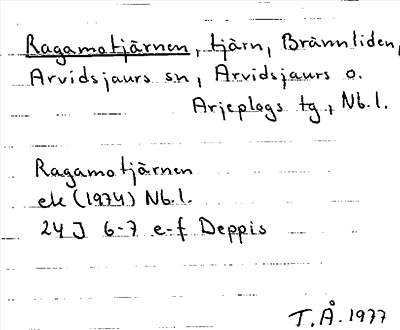 Ragamotjärnen, tjärn, Brännliden,
Arvidsjaurs sn, Arvidsjaurs o.
Arjeplogs tg, Nb.l.
Ragamotjärnen
ek (1974) Nb.l.
24J 6-7 e-f Deppis
T.Å. 1977